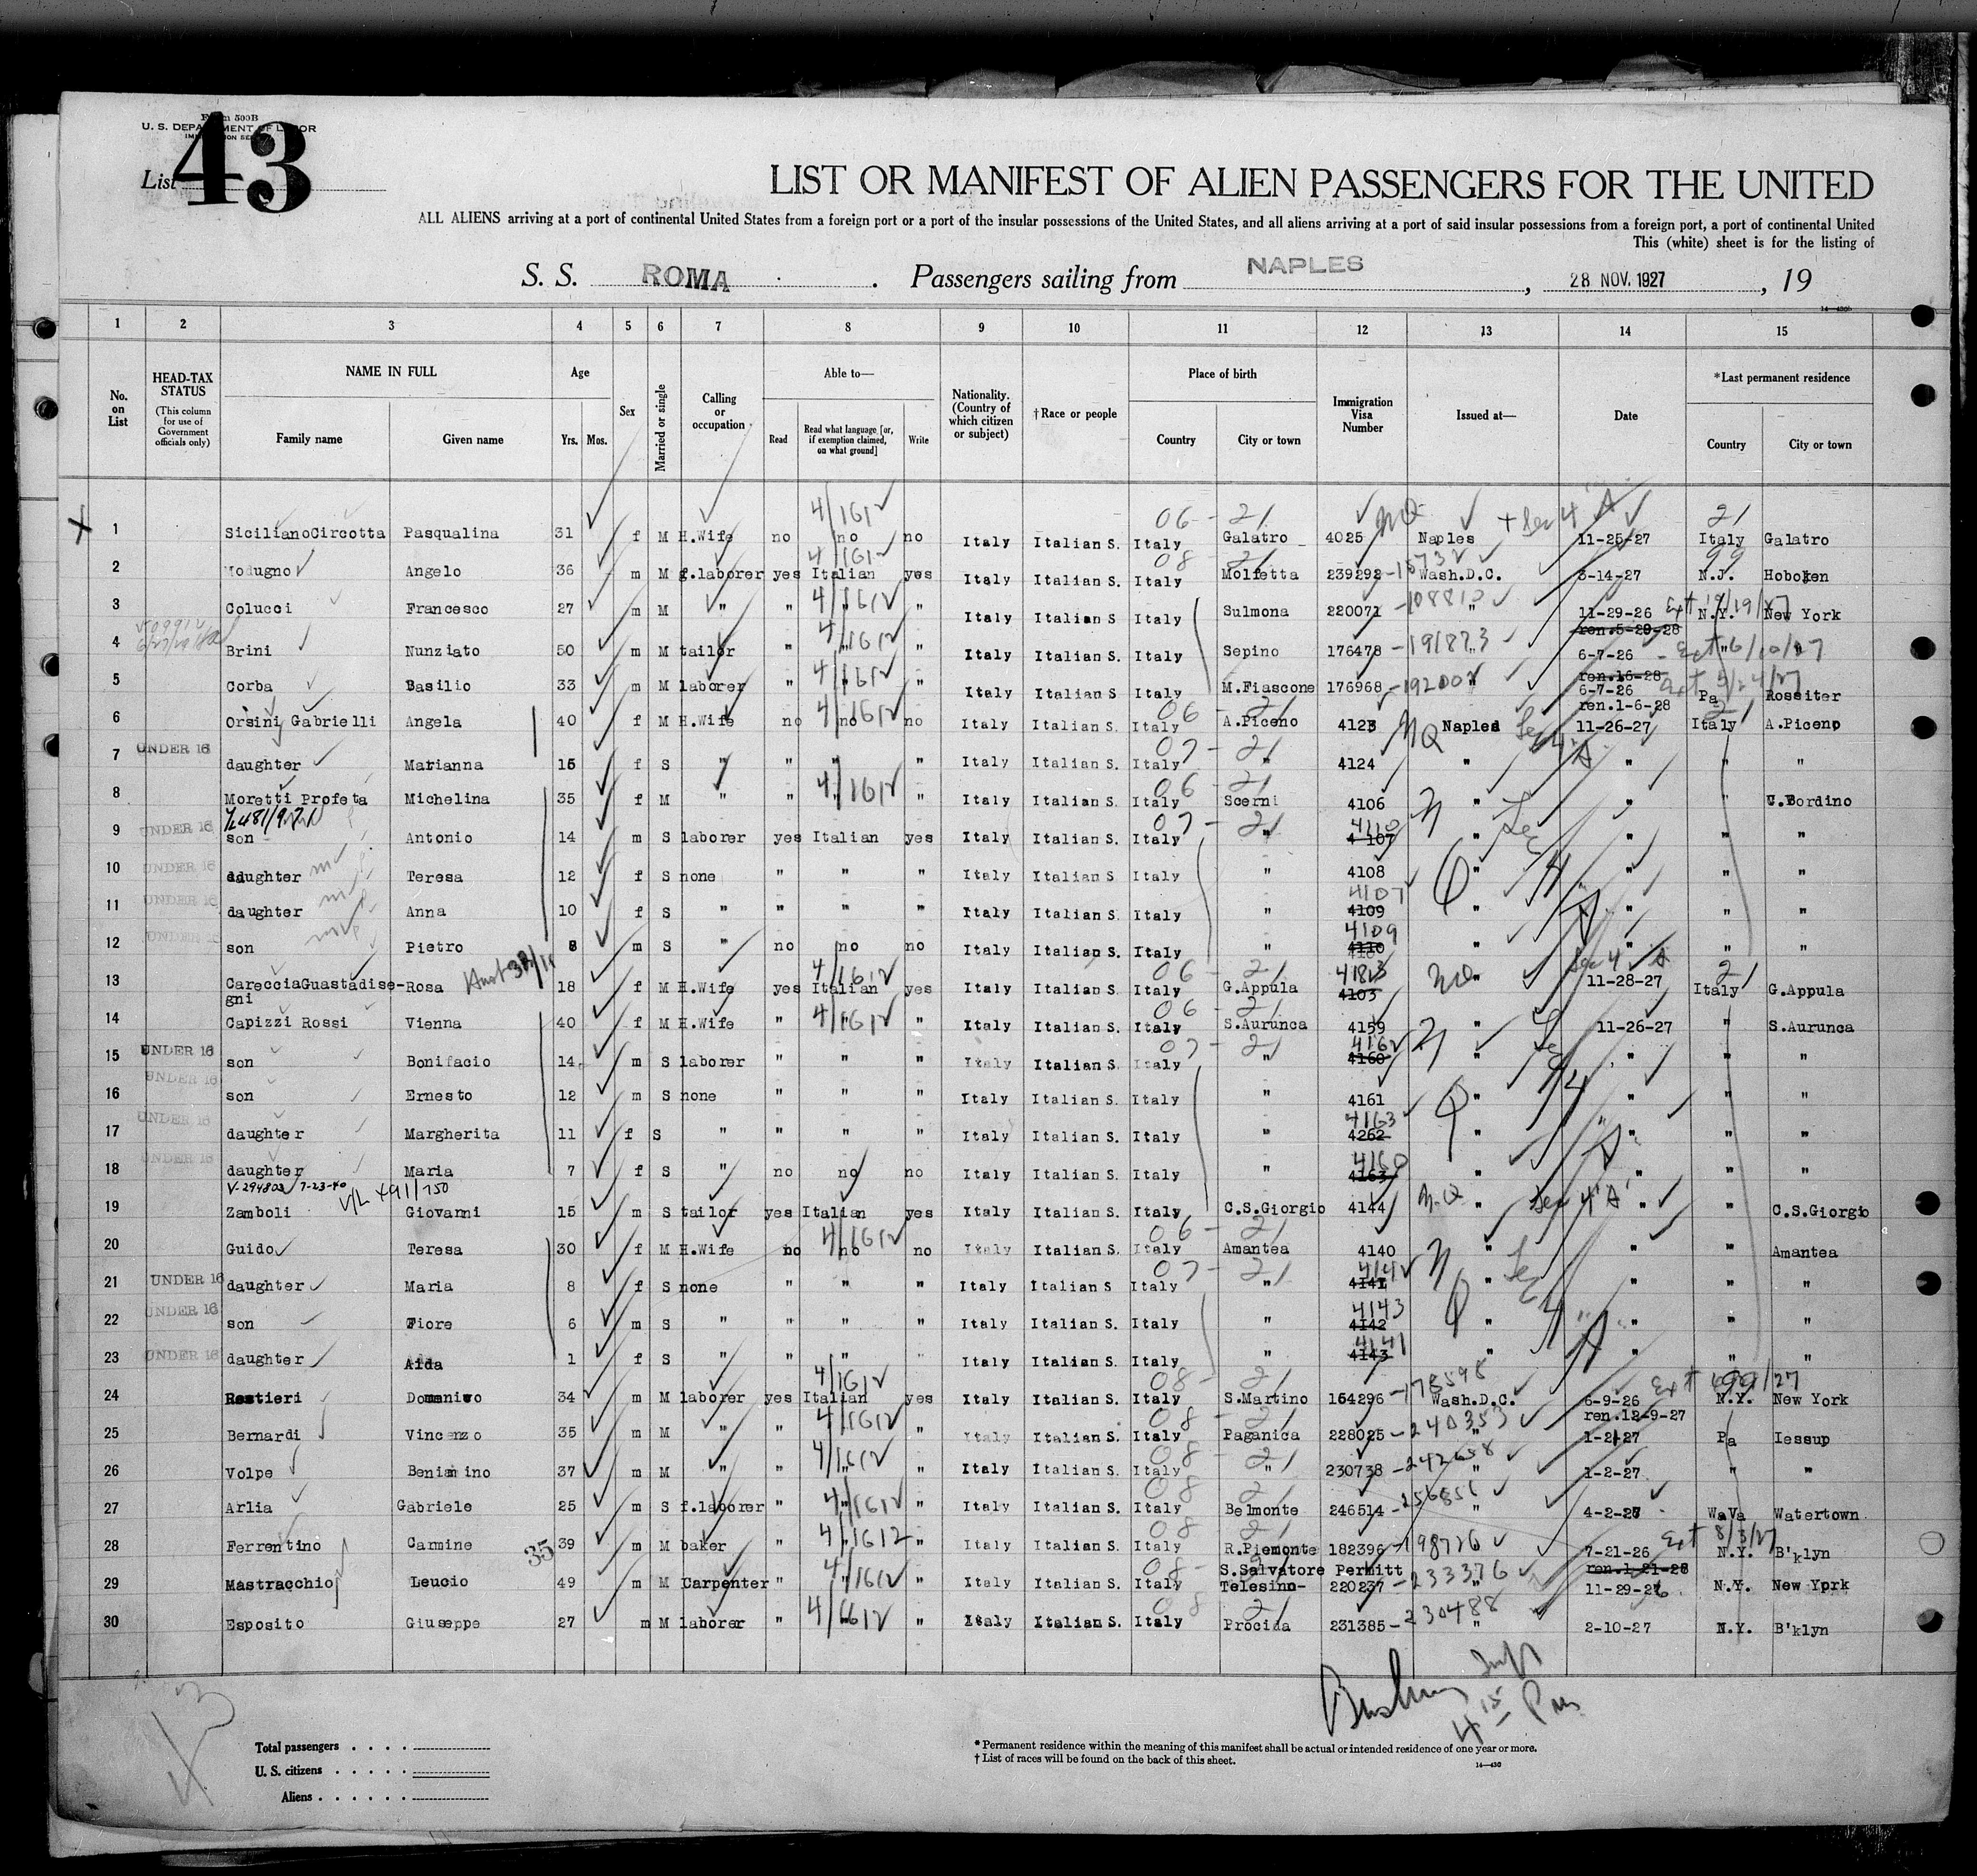 Form 500B
U. S. DEPARTMENT OF LABOR
IMMIGRATION SERVICE
List 43
LIST OR MANIFEST OF ALIEN PASSENGERS FOR THE UNITED
ALL ALIENS arriving at a port of continental United States from a foreign port or a port of the insular possessions of the United States, and all aliens arriving at a port of said insular possessions from a foreign port, a port of continental United
This (white) sheet is for the listing of
S. S. ROMA . Passengers sailing from NAPLES , 28 NOV. 1927 , 19
1 2 3 4 5 6 7 8 9 10 11 12 13 14 15
No. on List
HEAD-TAX STATUS (This column for use of Government officials only)
NAME IN FULL Family name Given name
Age Yrs. Mos.
Sex
Married or single
Calling or occupation
Able to— Read Read what language [or, if exemption claimed, on what ground] Write
Nationality. (Country of which citizen or subject)
†Race or people
Place of birth Country City or town
Immigration Visa Number
Issued at—
Date
*Last permanent residence Country City or town
1 SicilianoCircotta Pasqualina 31 f M H.Wife no no no Italy Italian S. Italy Galatro 4025 Naples 11-25-27 Italy Galatro
2 Modugno Angelo 36 m M f.laborer yes Italian yes Italy Italian S. Italy Molfetta 239292 Wash.D.C. 3-14-27 N.J. Hoboken
3 Colucci Francesco 27 m M " " " " Italy Italian S Italy Sulmona 220071 -108810 " 11-29-26 N.Y. New York
ren.5-29-28
4 Brini Nunziato 50 m M tailor " " " Italy Italian S. Italy Sepino 176478 -191873 " 6-7-26 " "
ren.16-28
5 Corba Basilio 33 m M laborer " " " Italy Italian S. Italy M.Fiascone 176968 -192002 " 6-7-26 Pa Rossiter
ren.1-6-28
6 Orsini Gabrielli Angela 40 f M H.Wife no no no Italy Italian S. Italy A.Piceno 4123 Naples 11-26-27 Italy A.Piceno
7 UNDER 16 daughter Marianna 15 f S " " " " Italy Italian S. Italy " 4124 " " " "
8 Moretti Profeta Michelina 35 f M " " " " Italy Italian S. Italy Scerni 4106 " " " C.Bordino
9 UNDER 16 son Antonio 14 m S laborer yes Italian yes Italy Italian S. Italy " 4110 4107 " " " "
10 UNDER 16 daughter Teresa 12 f S none " " " Italy Italian S Italy " 4108 " " " "
11 UNDER 16 daughter Anna 10 f S " " " " Italy Italian S. Italy " 4107 4109 " " " "
12 UNDER 16 son Pietro 8 m S " no no no Italy Italian S. Italy " 4109 4110 " " " "
13 CarecciaGuastadise-gni Rosa 18 f M H.Wife yes Italian yes Italy Italian S. Italy G.Appula 4103 " 11-28-27 Italy G.Appula
14 Capizzi Rossi Vienna 40 f M H.Wife " " " Italy Italian S. Italy S.Aurunca 4159 " 11-26-27 " S.Aurunca
15 UNDER 16 son Bonifacio 14 m S laborer " " " Italy Italian S. Italy " 4162 4160 " " " "
16 UNDER 16 son Ernesto 12 m S none " " " Italy Italian S. Italy " 4161 " " " "
17 UNDER 16 daughter Margherita 11 f S " " " " Italy Italian S. Italy " 4163 4262 " " " "
18 UNDER 16 daughter Maria 7 f S " no no no Italy Italian S. Italy " 4160 4163 " " " "
V-294803 7-23-40
19 Zamboli Giovanni 15 m S tailor yes Italian yes Italy Italian S. Italy C.S.Giorgio 4144 N.Q " Sec 4 'A' " " C.S.Giorgio
20 Guido Teresa 30 f M H.Wife no no no Italy Italian S. Italy Amantea 4140 " " " Amantea
21 UNDER 16 daughter Maria 8 f S none " " " Italy Italian S Italy " 4142 4141 " " " "
22 UNDER 16 son Fiore 6 m S " " " " Italy Italian S. Italy " 4143 4142 " " " "
23 UNDER 16 daughter Aida 1 f S " " " " Italy Italian S. Italy " 4141 4143 " " " "
24 Restieri Domenico 34 m M laborer yes Italian yes Italy Italian S. Italy S.Martino 154296 -178598 Wash.D.C. 6-9-26 N.Y. New York
ren.12-9-27
25 Bernardi Vincenzo 35 m M " " " " Italy Italian S. Italy Paganica 228025 -240353 " 1-2-27 Pa Iessup
26 Volpe Beniamino 37 m M " " " " Italy Italian S. Italy " 230738 -242658 " 1-2-27 " "
27 Arlia Gabriele 25 m S f.laborer " " " Italy Italian S. Italy Belmonte 246514 -256856 " 4-2-27 WaVa Watertown
28 Ferrentino Carmine 39 m M baker " " " Italy Italian S. Italy R.Piemonte 182396 -198726 7-21-26 Ext 8/3/27 N.Y. B'klyn
ren.1-21-28
29 Mastracchio Leucio 49 m M Carpenter " " " Italy Italian S. Italy S.Salvatore Telesino- Permitt 220237 -233376 " 11-29-26 N.Y. New York
30 Esposito Giuseppe 27 m M laborer " " " Italy Italian S. Italy Procida 231385 -230488 " 2-10-27 N.Y. B'klyn
43
Total passengers
U. S. citizens
Aliens
* Permanent residence within the meaning of this manifest shall be actual or intended residence of one year or more.
† List of races will be found on the back of this sheet.
14—430